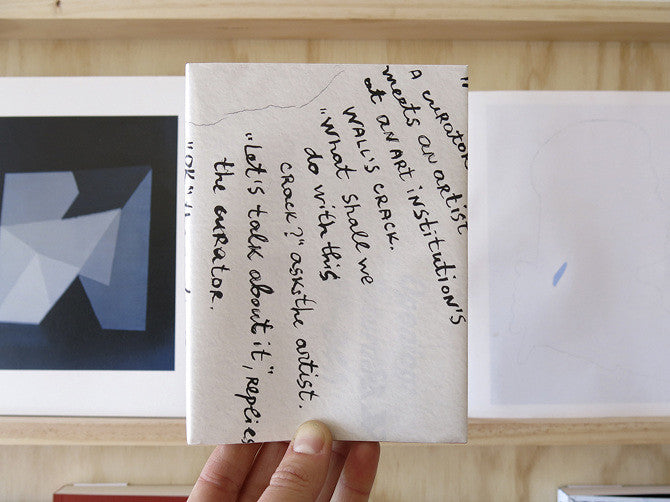 A curator
meets an artist
at an art institution's
wall's crack.
"What shall we
do with this
crack?" asks the artist.
"Let's talk about it", replies
the curator.
"OK"